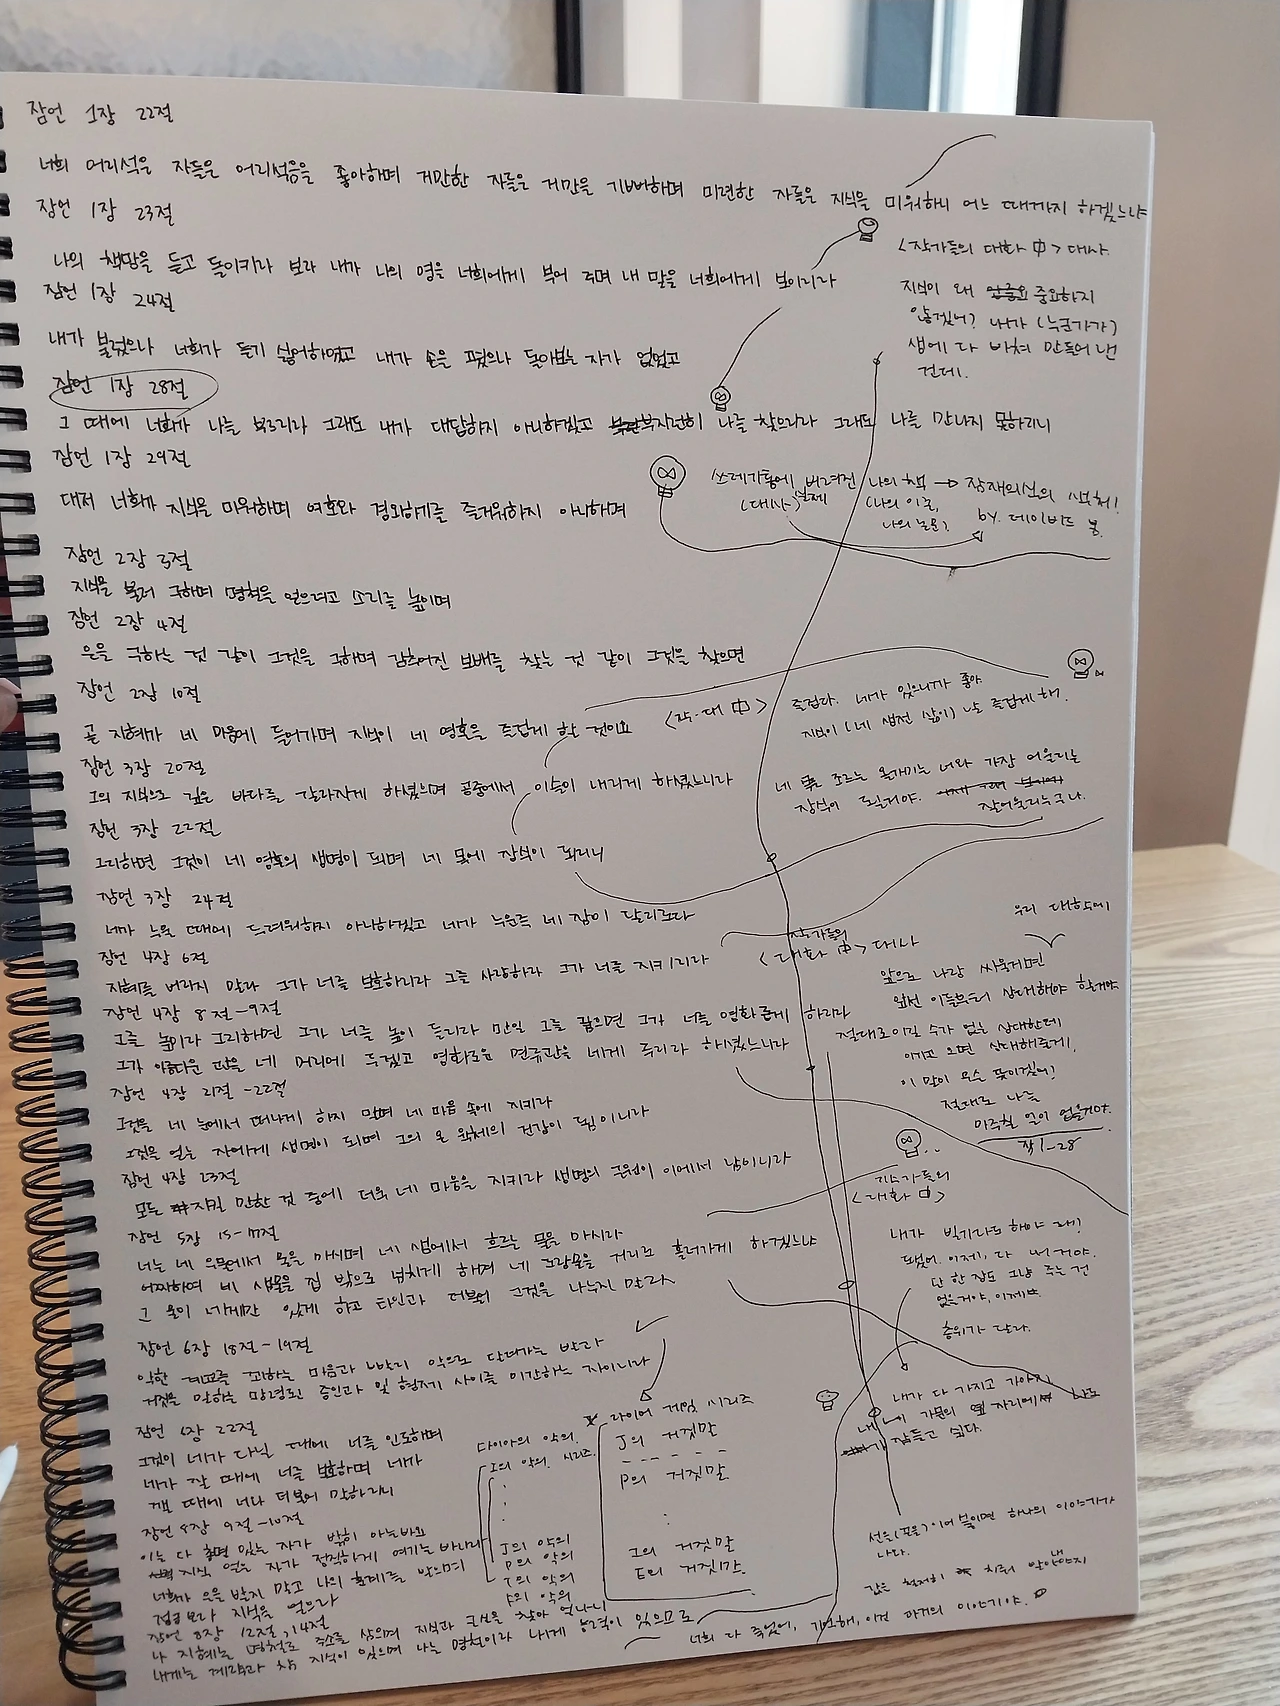 잠언 1장 22절
너희 어리석은 자들은 어리석음을 좋아하며 거만한 자들은 거만을 기뻐하며 미련한 자들은 지식을 미워하니 어느 때까지 하겠느냐
잠언 1장 23절
나의 책망을 듣고 돌이키라 보라 내가 나의 영을 너희에게 부어 주며 내 말을 너희에게 보이리라
잠언 1장 24절
내가 불렀으나 너희가 듣기 싫어하였고 내가 손을 폈으나 돌아보는 자가 없었고
잠언 1장 28절
그 때에 너희가 나를 부르리라 그래도 내가 대답하지 아니하겠고 부지런히 나를 찾으리라 그래도 나를 만나지 못하리니
잠언 1장 29절
대저 너희가 지식을 미워하며 여호와 경외하기를 즐거워하지 아니하며
잠언 2장 3절
지식을 불러 구하며 명철을 얻으려고 소리를 높이며
잠언 2장 4절
은을 구하는 것 같이 그것을 구하며 감추어진 보배를 찾는 것 같이 그것을 찾으면
잠언 2장 10절
곧 지혜가 네 마음에 들어가며 지식이 네 영혼을 즐겁게 할 것이요
잠언 3장 20절
그의 지식으로 깊은 바다를 갈라지게 하셨으며 공중에서 이슬이 내리게 하셨느니라
잠언 3장 22절
그리하면 그것이 네 영혼의 생명이 되며 네 목에 장식이 되리니
잠언 3장 24절
네가 누울 때에 두려워하지 아니하겠고 네가 누운즉 네 잠이 달리로다
잠언 4장 6절
지혜를 버리지 말라 그가 너를 보호하리라 그를 사랑하라 그가 너를 지키리라
잠언 4장 8절-9절
그를 높이라 그리하면 그가 너를 높이 들리라 만일 그를 품으면 그가 너를 영화롭게 하리라
그가 아름다운 관을 네 머리에 두겠고 영화로운 면류관을 네게 주리라 하셨느니라
잠언 4장 21절-22절
그것을 네 눈에서 떠나게 하지 말며 네 마음 속에 지키라
그것은 얻는 자에게 생명이 되며 그의 온 육체의 건강이 됨이니라
잠언 4장 23절
모든 지킬 만한 것 중에 더욱 네 마음을 지키라 생명의 근원이 이에서 남이니라
잠언 5장 15-17절
너는 네 우물에서 물을 마시며 네 샘에서 흐르는 물을 마시라
어찌하여 네 샘물을 집 밖으로 넘치게 하며 네 도랑물을 거리로 흘러가게 하겠느냐
그 물이 네게만 있게 하고 타인과 더불어 그것을 나누지 말라
잠언 6장 18절-19절
악한 계교를 꾀하는 마음과 빨리 악으로 달려가는 발과
거짓을 말하는 망령된 증인과 및 형제 사이를 이간하는 자이니라
잠언 6장 22절
그것이 네가 다닐 때에 너를 인도하며
네가 잘 때에 너를 보호하며 네가
깰 때에 너와 더불어 말하리니
잠언 8장 9절-10절
이는 다 총명 있는 자가 밝히 아는바요
지식 얻은 자가 정직하게 여기는 바니라
너희가 은을 받지 말고 나의 훈계를 받으며
정금보다 지식을 얻으라
잠언 8장 12절, 14절
나 지혜는 명철로 주소를 삼으며 지식과 근신을 찾아 얻나니
내게는 계략과 참 지식이 있으며 나는 명철이라 나에게 능력이 있으므로
<작가들의 대화 中> 대사
지식이 왜 중요하지
않겠어? 내가 (누군가가)
생에 다 바쳐 만들어 낸
건데.
쓰레기통에 버려진 나의 책 → 잠재의식의
(대사) 실제 (나의 이론,
나의 논문)
by. 데이비드 봄.
<작·대 中> 즐겁다. 네가 있으니까 좋아
지식이 (네 생전 삶이) 날 즐겁게 해.
네 목 조르는 올가미는 너와 가장 어울리는
장식이 될거야.
잘어울리는구나.
작가들의
<대화 中> 대사
우리 대학에
앞으로 나랑 싸울게면
우선 이들부터 상대해야 할거야
절대로 이길 수가 없는 상대한테
이기고 오면 상대해줄게.
이 말이 무슨 뜻이겠어?
절대로 나를
마주칠 일이 없을거야.
잠 1-28
<대화 中>
내가 빌기라도 해야 돼?
됐어. 이제, 다 내 거야.
단 한 잔도 그냥 주는 건
없을거야, 이제는.
층위가 달라.
내가 다 가지고 가야지
잠들고 싶다.
선을(조을) 이어 붙이면 하나의 이야기가
나와.
값은 철저히 치뤄 받아내야지
너희 다 죽었어, 기억해, 이건 과거의 이야기야.
다이아의 악의.
I의 악의. 시리즈.
J의 악의
P의 악의
T의 악의
F의 악의
라이어 게임 시리즈
J의 거짓말
P의 거짓말
I의 거짓말
E의 거짓말.